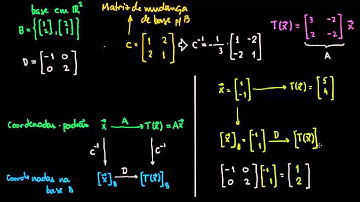 base em ℝ²
B = {[1 2], [2 1]}
Matriz de mudança
de base p/ B
C = [1 2
2 1] ⇒ C⁻¹ = -1/3 [1 -2
-2 1]
T(x⃗) = [3 -2
2 -2] x⃗
A
D = [-1 0
0 2]
Coordenadas-padrão x⃗ A T(x⃗) = Ax⃗
C⁻¹ C⁻¹
Coordenadas na
base B
[x⃗]_B D [T(x⃗)]_B
x⃗ = [1
-1] → T(x⃗) = [5
4]
[x⃗]_B = [-1
1] D → [T(x⃗)]
[-1 0
0 2] [-1
1] = [1
2]